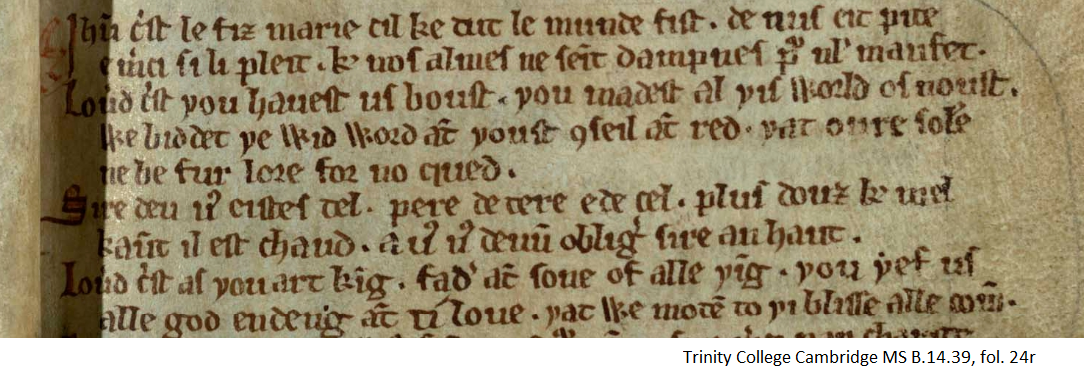 Ihū c̄st le fiz marie cil ke tut le munde fist. de nus eit pite
e m̄ci si li pleit. k nos almes ne seīt dampnes ꝑ ul maufet.
Lou̅d c̄st you hauest us boust. you madest al yis World of noust.
We biddet ye Wid Word āt youst ꝯseil āt red. yat oure sole
ne be fur lore for no qued.
Sire deu
pere de tere e de cel. plus douz k mel
kaūt il est chaud.
oblig sire au haut.
Lou̅d c̄st as you art kīg. fad āt soue of alle yīg. you yef us
alle god endeīg āt ti loue. yat We motē to yi blisse alle com̄.
Trinity College Cambridge MS B.14.39, fol. 24r